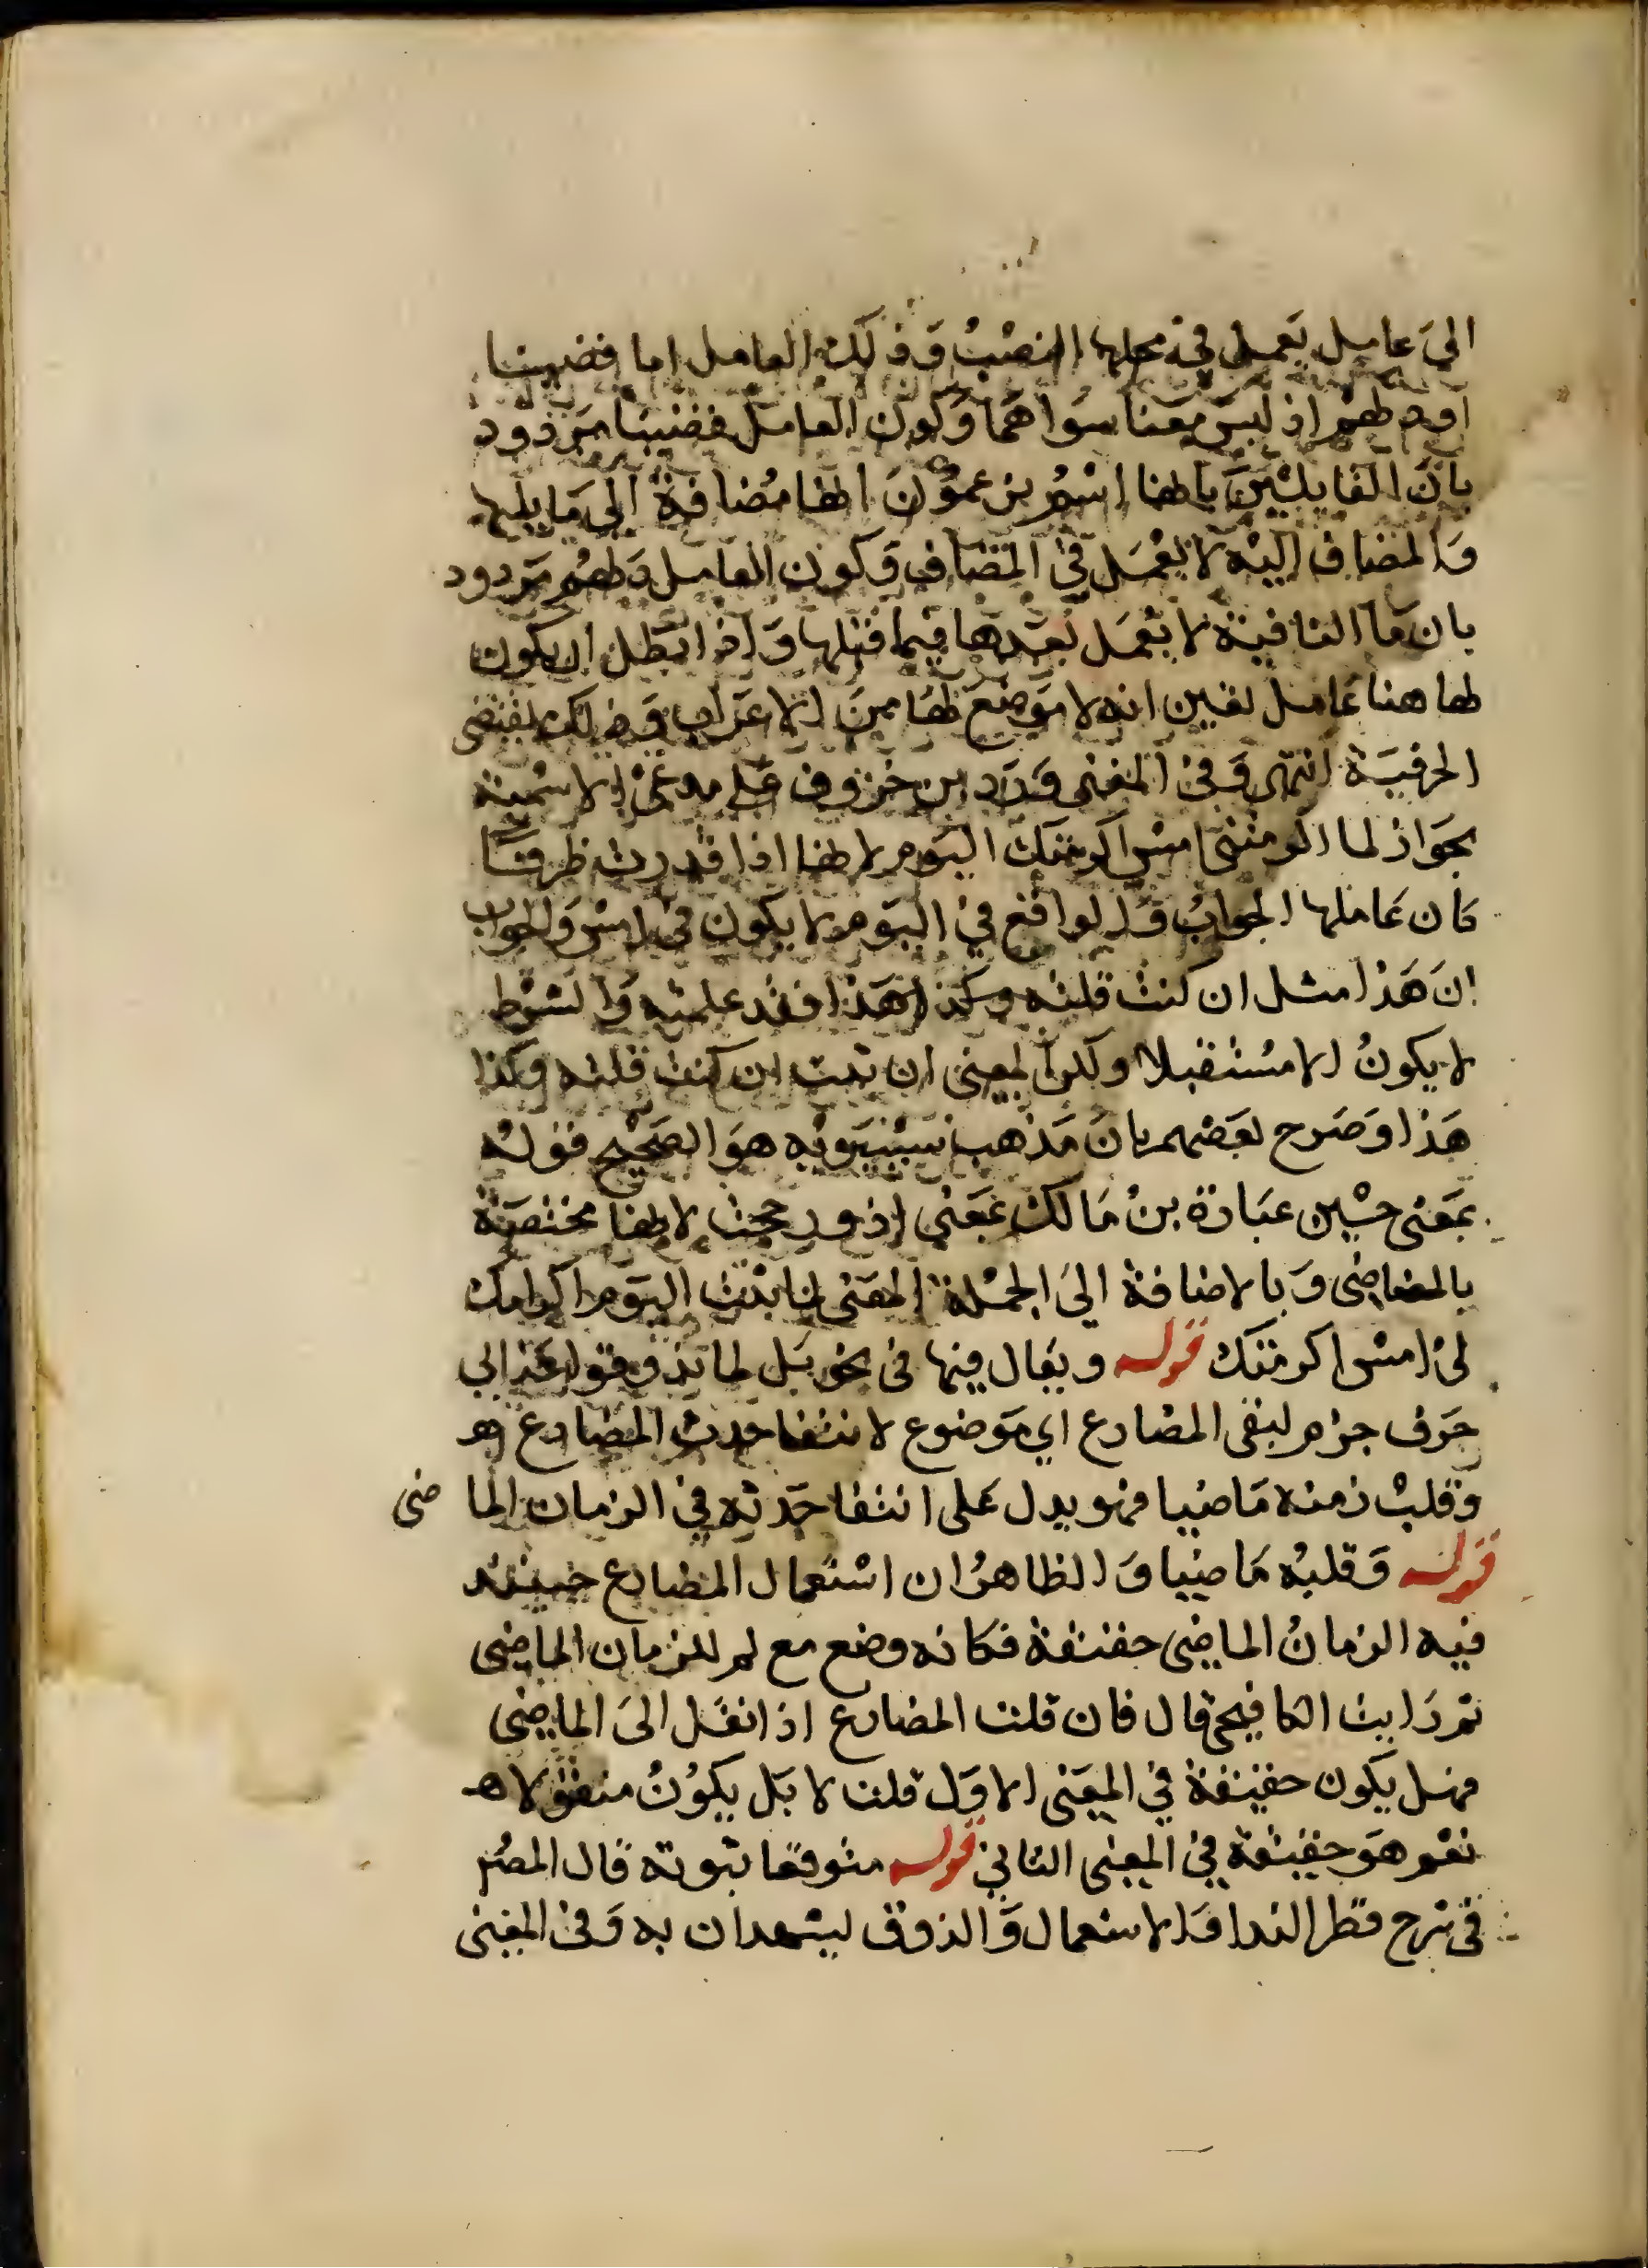 الى عامل يعمل في محلها النصب وذلك العامل اما قضينا
او دلهم اذ ليس معنا سواهما وكون العامل قضينا مردود
بان القايلين بانها اسم يزعمون انها مضافة الى ما يليها
والمضاف اليه لا يعمل في المضاف وكون العامل دلهم مردود
بان ما النافية لا يعمل بعدها فيما قبلها واذا بطل ان يكون
لها هنا عامل تعين انه لا موضع لها من الاعراب وذلك يقتضي
الحرفية انتهى وفي المغني ورد ابن خروف على مدعي الاسمية
بجواز لما اكرمتني امس اكرمتك اليوم لانها اذا قدرت ظرفا
كان عاملها الجواب والواقع في اليوم لا يكون في امس والجواب
ان هذا مثل ان كنت قلته وكذا هذا فقد علمته والشرط
لا يكون الا مستقبلا ولكن المعنى ان ثبت ان كنت قلته وكذا
هذا وصرح بعضهم بان مذهب سيبويه هو الصحيح قوله
بمعنى حين عبارة بن مالك بمعنى اذ ورجحت لانها مختصة
بالماضي وبالاضافة الى الجملة المعنى لما ثبت اليوم اكرامك
لي امس اكرمتك قوله ويقال فيها في نحو بل لما يذوقوا عذابي
حرف جزم لنفي المضارع اي موضوع لانتفا حدث المضارع اهـ
وقلب زمنه ماضيا فهو يدل على انتفا حدثه في الزمان الما ضى
قوله وقلبه ماضيا والظاهر ان استعمال المضارع حينئذ
فيه الزمان الماضي حقيقة فكانه وضع مع لم للزمان الماضي
ثم رايت الكافيجي قال فان قلت المضارع اذا نقل الى الماضي
فهل يكون حقيقة في المعنى الاول قلت لا بل يكون منقولا اهـ
نعم هو حقيقة في المعنى الثاني قوله متوقعا ثبوته قال المص
في شرح قطر الندا والاستعمال والذوق ليشهدان به وفي المغني